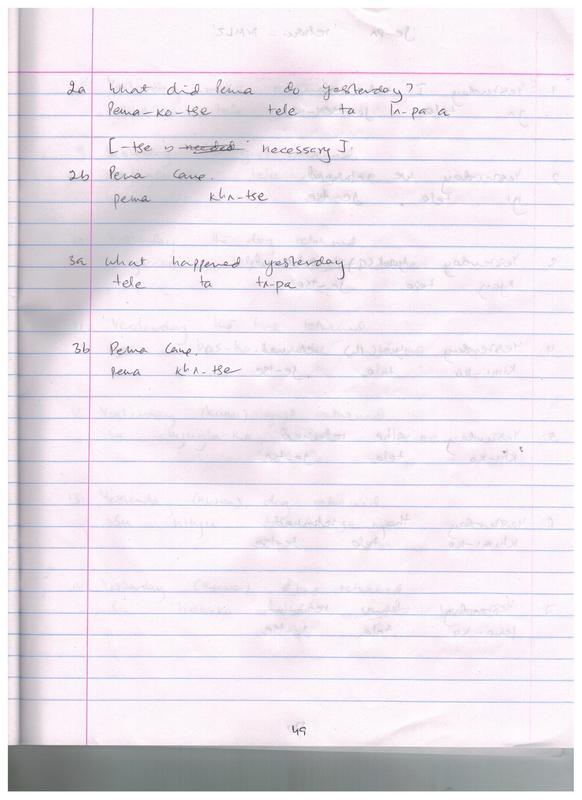 2a What did Pema do yesterday?
Pema-ko-tse tele ta lʌ-pa a
[-tse is needed necessary].
2b Pema came.
pema khʌ-tse
3a what happened yesterday
tele ta tʌ-pa
3b Pema came.
pema khʌ-tse
49